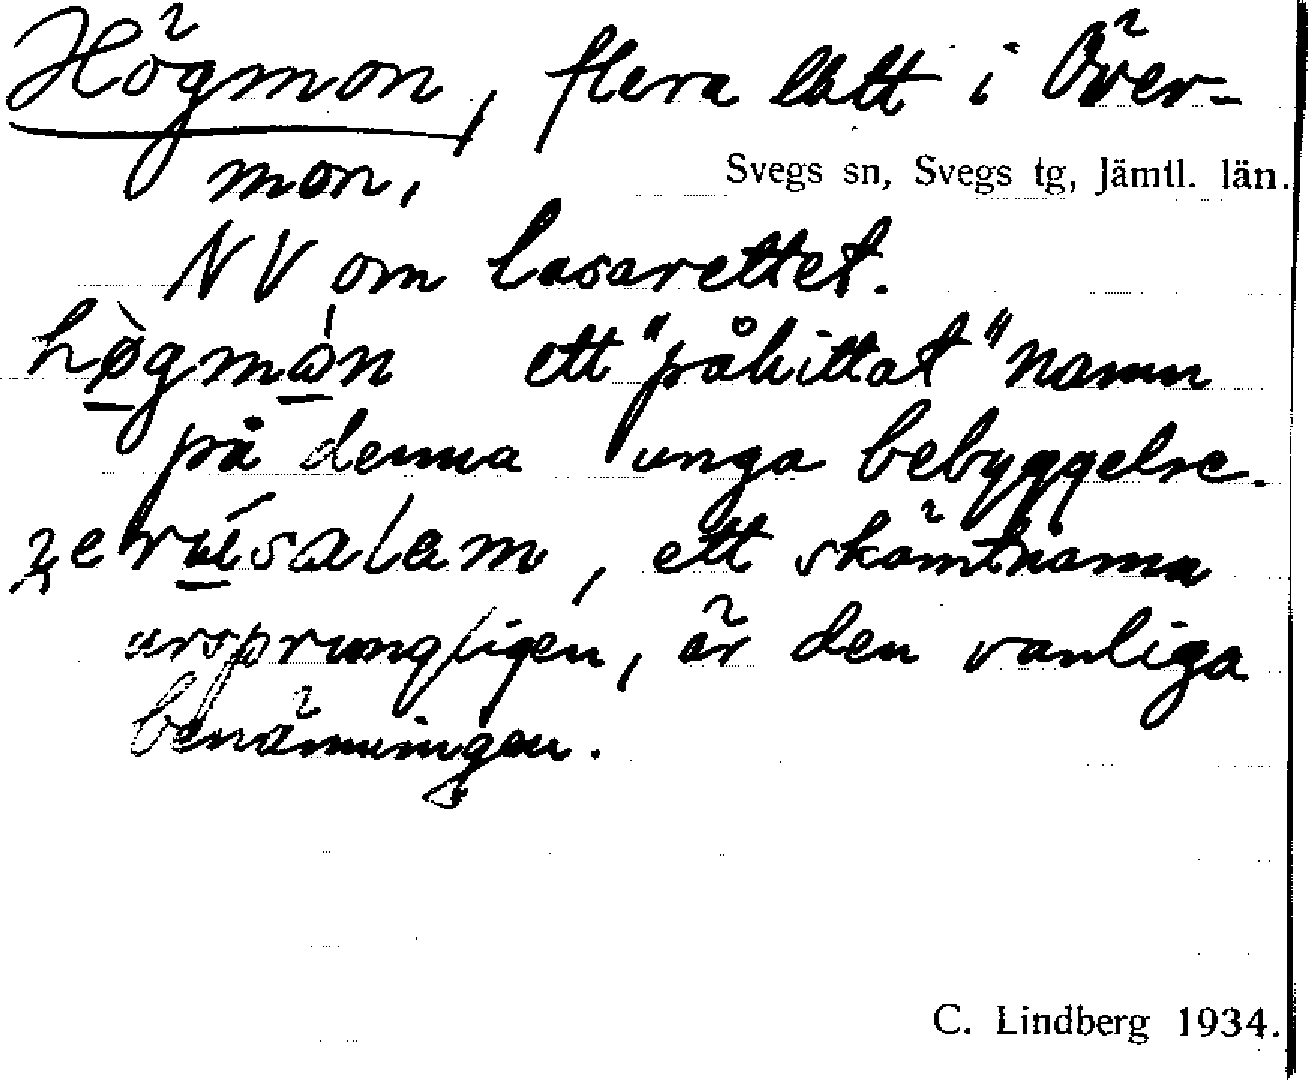 Högmon, flera lätt i Över-
mon,
Svegs sn, Svegs tg, Jämtl. län.
NV om lasarettet.
hø̀gmón ett "påhittat" namn
på denna unga bebyggelse.
rúsalem, ett skämtnamn
ursprungligen, är den vanliga
benämningen.
C. Lindberg 1934.